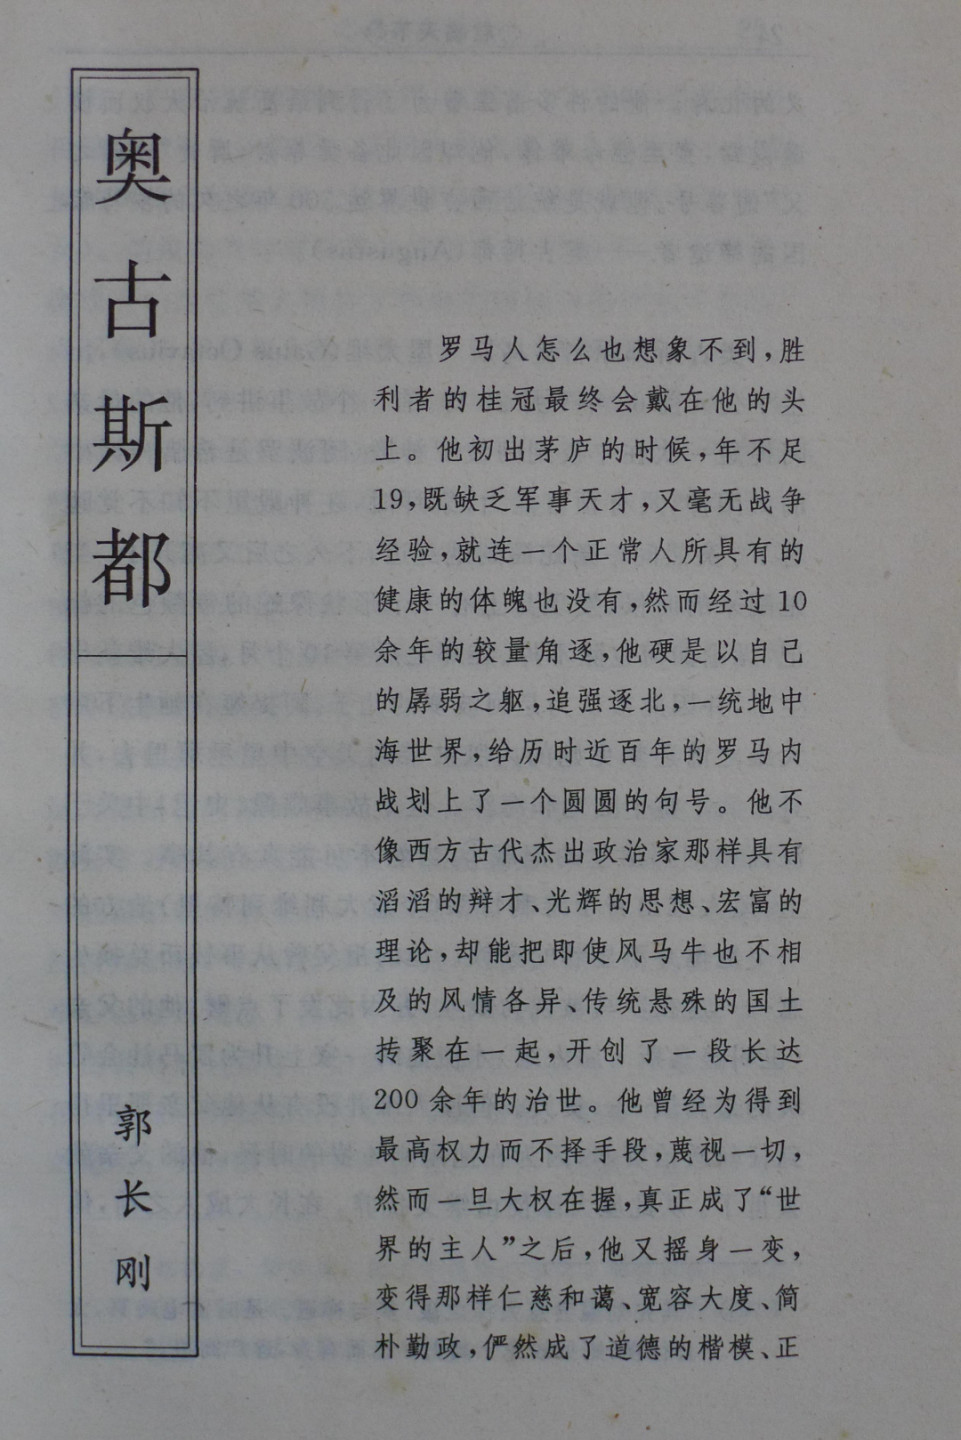 奥古斯都
郭长刚
罗马人怎么也想象不到，胜
利者的桂冠最终会戴在他的头
上。他初出茅庐的时候，年不足
19，既缺乏军事天才，又毫无战争
经验，就连一个正常人所具有的
健康的体魄也没有，然而经过 10
余年的较量角逐，他硬是以自己
的孱弱之躯，追强逐北，一统地中
海世界，给历时近百年的罗马内
战划上了一个圆圆的句号。他不
像西方古代杰出政治家那样具有
滔滔的辩才、光辉的思想、宏富的
理论，却能把即使风马牛也不相
及的风情各异、传统悬殊的国土
抟聚在一起，开创了一段长达
200 余年的治世。他曾经为得到
最高权力而不择手段，蔑视一切，
然而一旦大权在握，真正成了“世
界的主人”之后，他又摇身一变，
变得那样仁慈和蔼、宽容大度、简
朴勤政，俨然成了道德的楷模、正